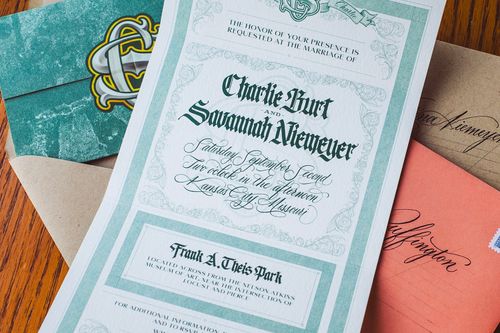 Charlie
THE HONOR OF YOUR PRESENCE IS
REQUESTED AT THE MARRIAGE OF
Charlie Burt
AND
Savannah Niemeyer
Saturday September Second
Two o'clock in the afternoon
Kansas City Missouri
Frank A. Theis Park
LOCATED ACROSS FROM THE NELSON ATKINS
MUSEUM OF ART, NEAR THE INTERSECTION OF
LOCUST AND PIERCE
FOR ADDITIONAL INFORMATION
AND TO
Niemeyer
Buffington